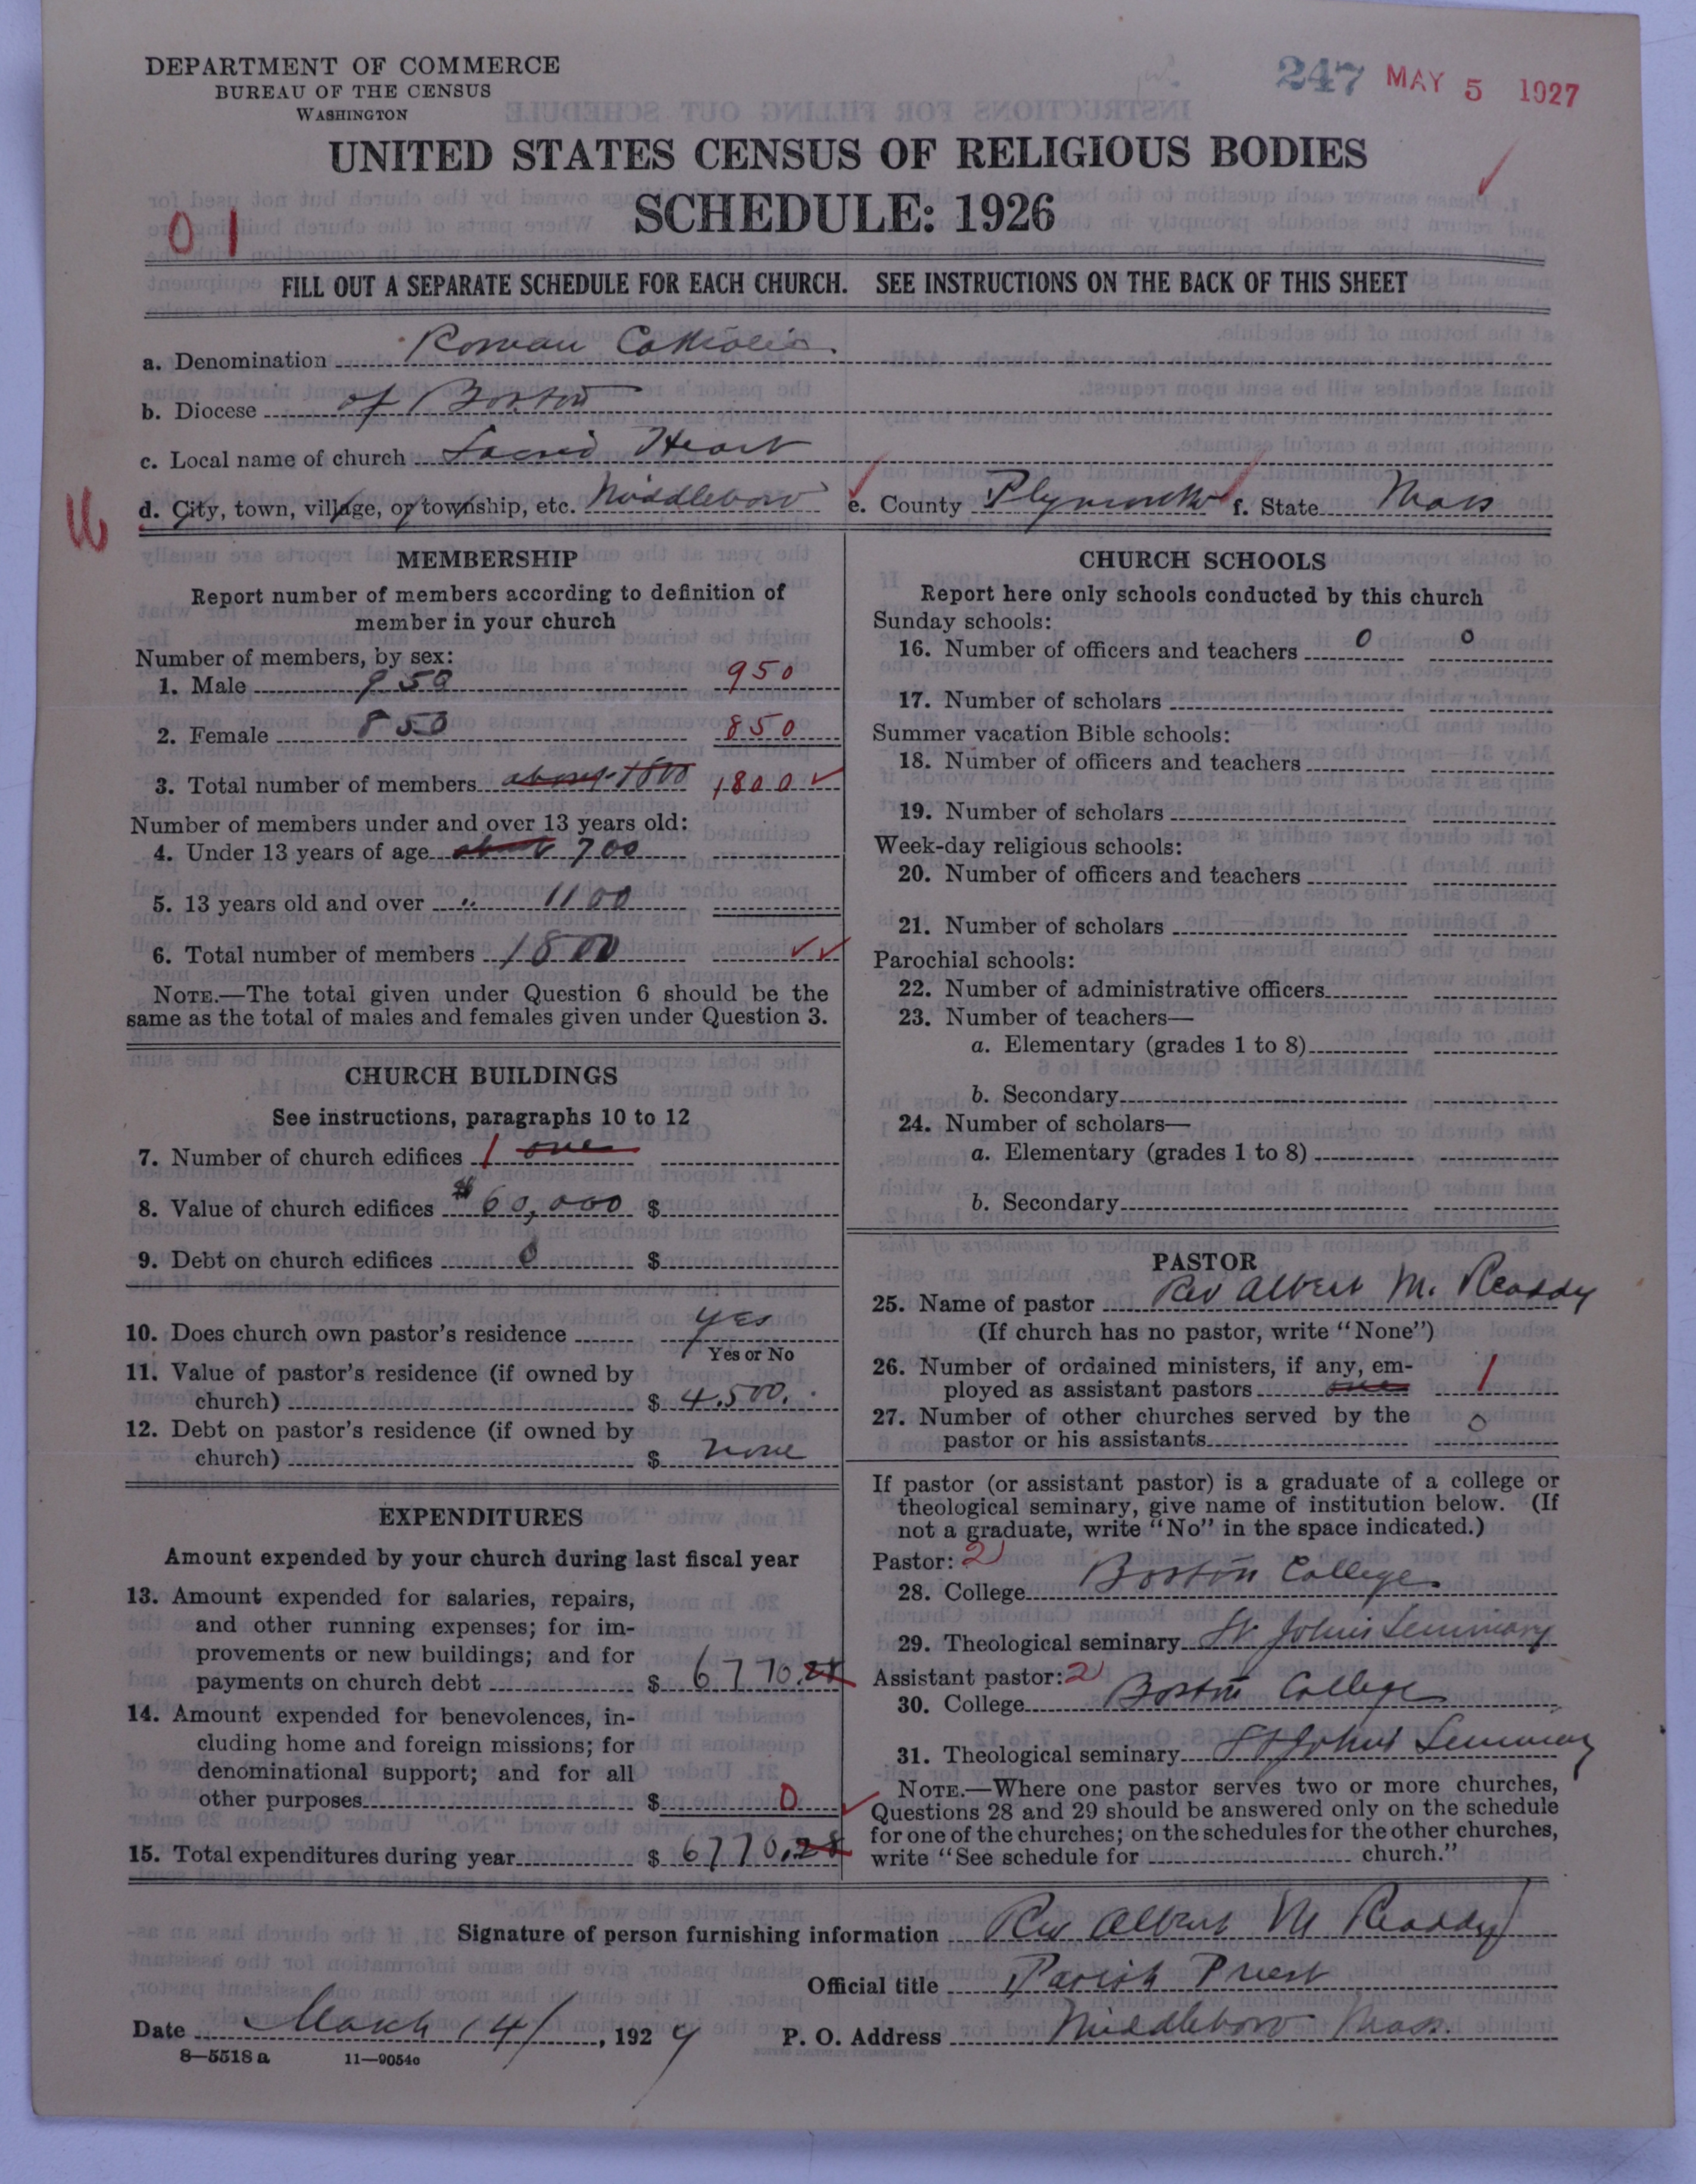 DEPARTMENT OF COMMERCE
BUREAU OF THE CENSUS
WASHINGTON
247 MAY 5 1927
UNITED STATES CENSUS OF RELIGIOUS BODIES
SCHEDULE: 1926
01
FILL OUT A SEPARATE SCHEDULE FOR EACH CHURCH. SEE INSTRUCTIONS ON THE BACK OF THIS SHEET
a. Denomination Roman Catholic
b. Diocese of Boston
c. Local name of church Sacred Heart
d. City, town, village, or township, etc. Middleboro e. County Plymouth f. State Mass
MEMBERSHIP
Report number of members according to definition of
member in your church
Number of members, by sex:
1. Male 950 950
2. Female 850 850
3. Total number of members about 1800 1800
Number of members under and over 13 years old:
4. Under 13 years of age about 700
5. 13 years old and over " 1100
6. Total number of members 1800
NOTE.—The total given under Question 6 should be the
same as the total of males and females given under Question 3.
CHURCH BUILDINGS
See instructions, paragraphs 10 to 12
7. Number of church edifices 1 one
8. Value of church edifices $60,000 $
9. Debt on church edifices 0 $
10. Does church own pastor's residence yes
Yes or No
11. Value of pastor's residence (if owned by
church) $ 4,500.
12. Debt on pastor's residence (if owned by
church) $ none
EXPENDITURES
Amount expended by your church during last fiscal year
13. Amount expended for salaries, repairs,
and other running expenses; for im-
provements or new buildings; and for
payments on church debt $ 6770.28
14. Amount expended for benevolences, in-
cluding home and foreign missions; for
denominational support; and for all
other purposes $ 0
15. Total expenditures during year $ 6770.28
CHURCH SCHOOLS
Report here only schools conducted by this church
Sunday schools:
16. Number of officers and teachers 0 0
17. Number of scholars
Summer vacation Bible schools:
18. Number of officers and teachers
19. Number of scholars
Week-day religious schools:
20. Number of officers and teachers
21. Number of scholars
Parochial schools:
22. Number of administrative officers
23. Number of teachers—
a. Elementary (grades 1 to 8)
b. Secondary
24. Number of scholars—
a. Elementary (grades 1 to 8)
b. Secondary
PASTOR
25. Name of pastor Rev Albert M. Readdy
(If church has no pastor, write "None")
26. Number of ordained ministers, if any, em-
ployed as assistant pastors one 1
27. Number of other churches served by the
pastor or his assistants 0
If pastor (or assistant pastor) is a graduate of a college or
theological seminary, give name of institution below. (If
not a graduate, write "No" in the space indicated.)
Pastor: 2
28. College Boston College
29. Theological seminary St. John's Seminary
Assistant pastor: 2
30. College Boston College
31. Theological seminary St Johns Seminary
NOTE.—Where one pastor serves two or more churches,
Questions 28 and 29 should be answered only on the schedule
for one of the churches; on the schedules for the other churches,
write "See schedule for church."
Signature of person furnishing information Rev Albert M Readdy
Official title Parish Priest
Date March 14, 1927 P. O. Address Middleboro Mass.
8—5518 a 11—9054c